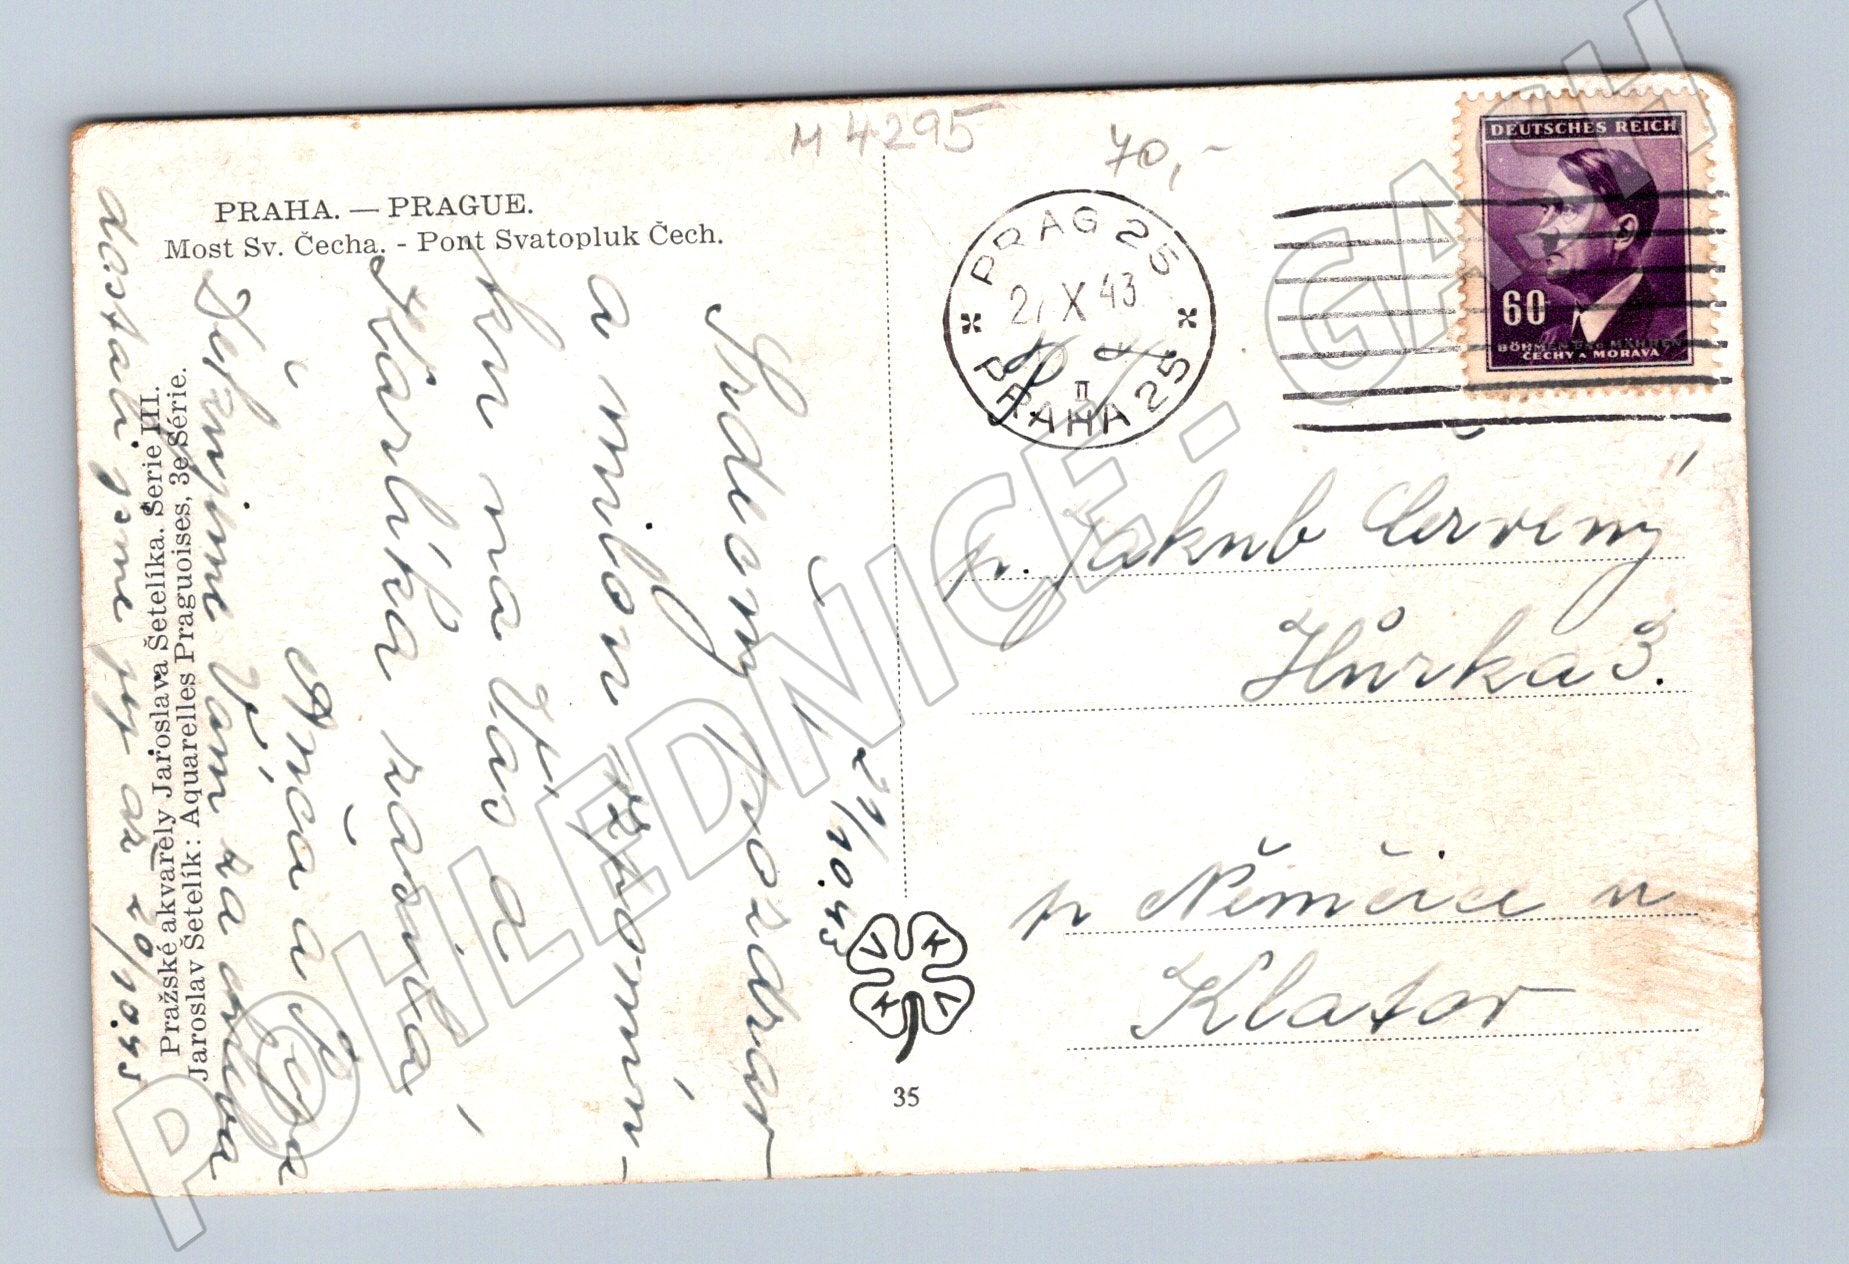 M 4295
70,-
PRAHA. — PRAGUE.
Most Sv. Čecha. - Pont Svatopluk Čech.
Pražské akvarely Jaroslava Šetelíka. Serie III.
Jaroslav Šetelík: Aquarelles Praguoises, 3e Série.
Č 21/10.43
Srdečný pozdrav
a milou vzpomín-
ku na Vás a
Karlíka zasílá
Anča a Pepa
Děkujime Vám za
dostali jsme jej až 20/10.43
PRAG 25
X 43
II
PRAHA 25
DEUTSCHES REICH
60
BÖHMEN UND MÄHREN
ČECHY A MORAVA
p. Jakub Červený
Hůrka 3.
p Němčice u
Klatov
V K K V
35
POHLEDNICE - GASH